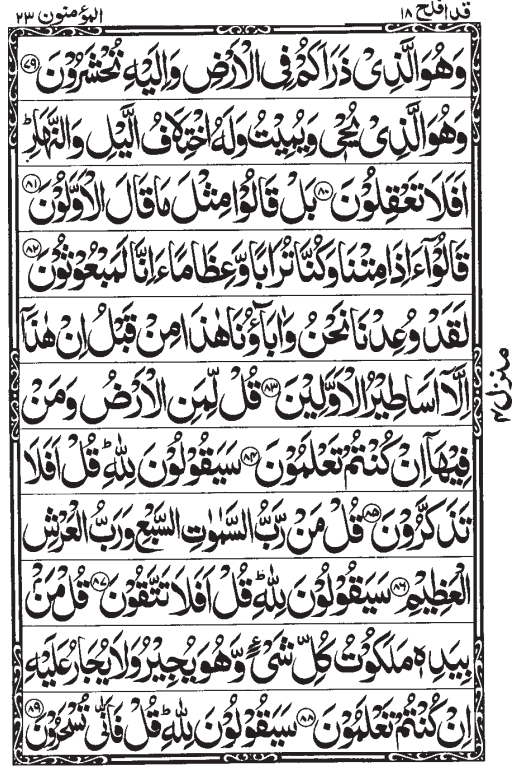 قد افلح ۱۸ المؤمنون ۲۳
وَهُوَ الَّذِیْ ذَرَاَكُمْ فِی الْاَرْضِ وَاِلَیْهِ تُحْشَرُوْنَ ﴿۷۹﴾
وَهُوَ الَّذِیْ یُحْیٖ وَیُمِیْتُ وَلَهُ اخْتِلَافُ الَّیْلِ وَالنَّهَارِؕ
اَفَلَا تَعْقِلُوْنَ ﴿۸۰﴾ بَلْ قَالُوْا مِثْلَ مَا قَالَ الْاَوَّلُوْنَ ﴿۸۱﴾
قَالُوْۤا ءَاِذَا مِتْنَا وَكُنَّا تُرَابًا وَّعِظَامًا ءَاِنَّا لَمَبْعُوْثُوْنَ ﴿۸۲﴾
لَقَدْ وُعِدْنَا نَحْنُ وَاٰبَآؤُنَا هٰذَا مِنْ قَبْلُ اِنْ هٰذَاۤ
اِلَّاۤ اَسَاطِیْرُ الْاَوَّلِیْنَ ﴿۸۳﴾ قُلْ لِّمَنِ الْاَرْضُ وَمَنْ
فِیْهَاۤ اِنْ كُنْتُمْ تَعْلَمُوْنَ ﴿۸۴﴾ سَیَقُوْلُوْنَ لِلّٰهِؕ قُلْ اَفَلَا
تَذَكَّرُوْنَ ﴿۸۵﴾ قُلْ مَنْ رَّبُّ السَّمٰوٰتِ السَّبْعِ وَرَبُّ الْعَرْشِ
الْعَظِیْمِ ﴿۸۶﴾ سَیَقُوْلُوْنَ لِلّٰهِؕ قُلْ اَفَلَا تَتَّقُوْنَ ﴿۸۷﴾ قُلْ مَنْۢ
بِیَدِهٖ مَلَكُوْتُ كُلِّ شَیْءٍ وَّهُوَ یُجِیْرُ وَلَا یُجَارُ عَلَیْهِ
اِنْ كُنْتُمْ تَعْلَمُوْنَ ﴿۸۸﴾ سَیَقُوْلُوْنَ لِلّٰهِؕ قُلْ فَاَنّٰی تُسْحَرُوْنَ ﴿۸۹﴾
منزل ۴